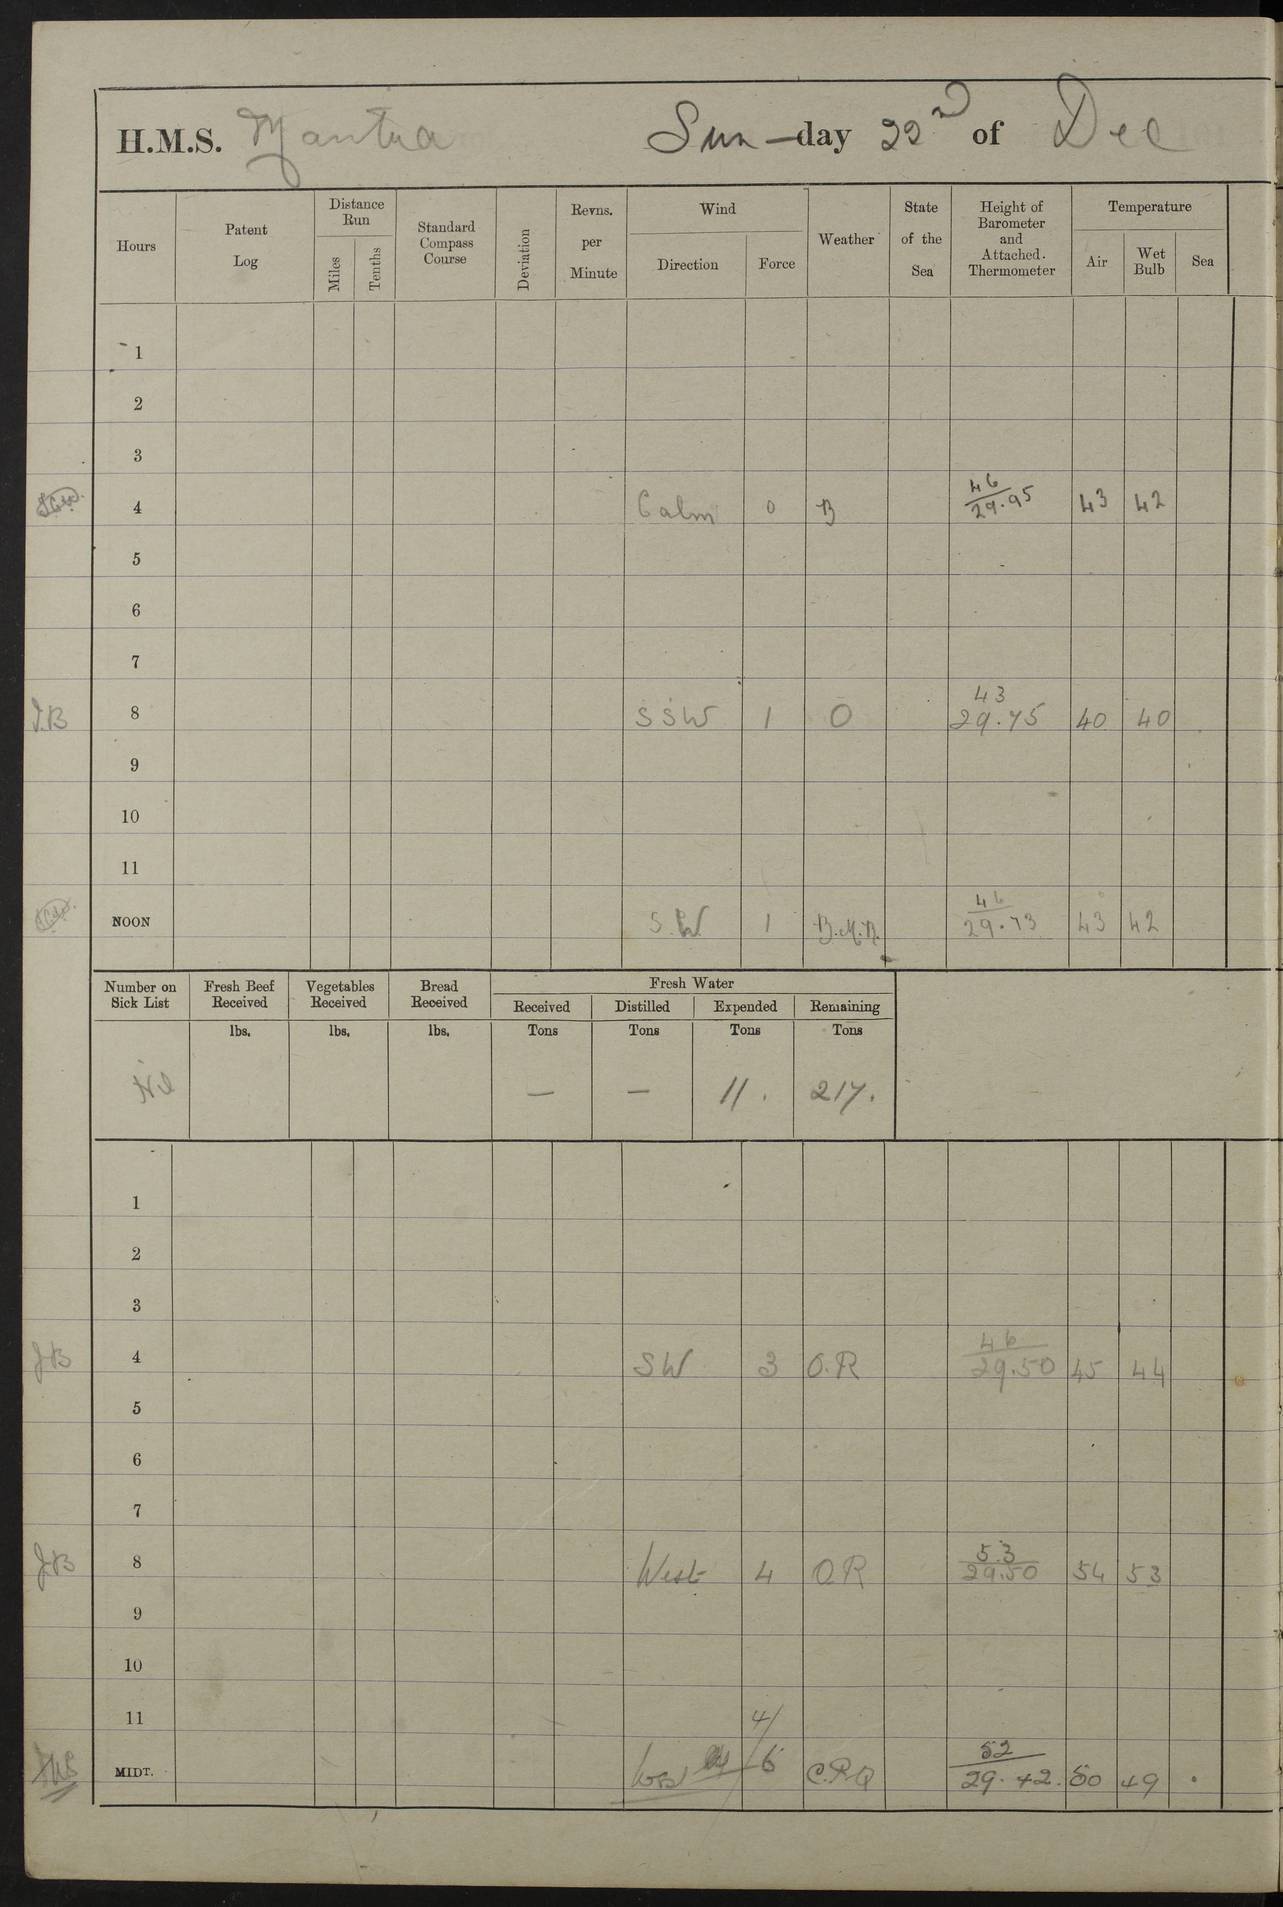 H.M.S. Mantua Sun-day 22nd of Dec
Hours Patent Log Distance Run Miles Tenths Standard Compass Course Deviation Revns. per Minute Wind Direction Force Weather State of the Sea Height of Barometer and Attached. Thermometer Temperature Air Wet Bulb Sea
1
2
3
46
4 Calm 0 B 29.95 43 42
5
6
7
43
J.B 8 SSW 1 O 29.75 40 40
9
10
11
46
NOON S.W 1 B.M.R. 29.73 43 42
Number on Sick List Fresh Beef Received Vegetables Received Bread Received Fresh Water
Received Distilled Expended Remaining
lbs. lbs. lbs. Tons Tons Tons Tons
Nil — — 11. 217.
1
2
3
46
JB 4 SW 3 O.R 29.50 45 44
5
6
7
53
JB 8 West 4 OR 29.50 54 53
9
10
11
4/6 52
MIDT. C.R.Q 29.42. 50 49